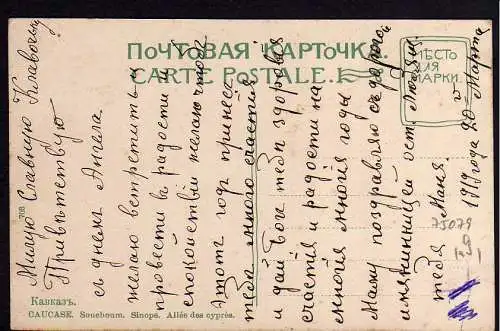 ПОЧТОВАЯ КАРТОЧКА.
CARTE POSTALE.
МѢСТО
ДЛЯ
МАРКИ
Милую Славную Клавочку
Привѣтствую
съ днемъ Ангела
желаю встрѣтить и
провести въ радости и
спокойствіи желаю чтобы
этотъ годъ принесъ
тебѣ много счастія
и дай Богъ тебѣ здоровія
счастія и радости на
многія многія годы
Маму поздравляю съ дорогой
имянинницей ост. любящ.
тебя Маня
1919 года 20 Марта
708
75079
Кавказъ.
CAUCASE. Souchoum. Sinope. Allée des cyprès.